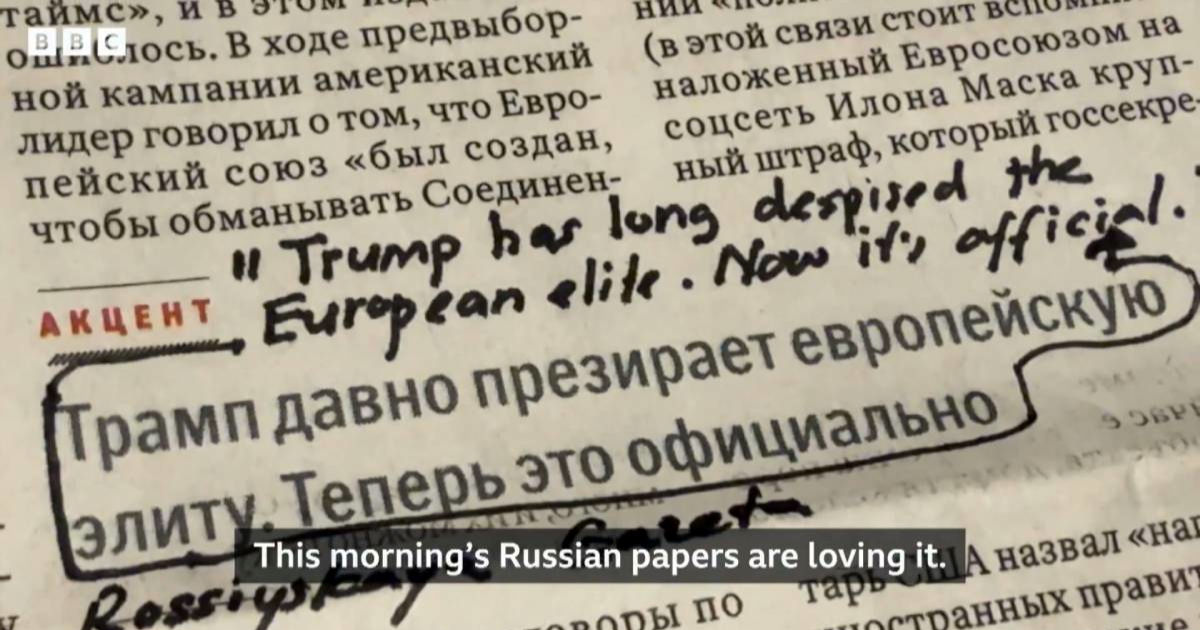 BBC
таймс», и в этом
ошиблось. В ходе предвыбор-
ной кампании американский
лидер говорил о том, что Евро-
пейский союз «был создан,
чтобы обманывать Соединен-
(в этой связи стоит
наложенный Евросоюзом на
соцсеть Илона Маска круп-
ный штраф, который госсекре-
"Trump has long despised the
European elite. Now it's official.
АКЦЕНТ
Трамп давно презирает европейскую
элиту. Теперь это официально
Rossiyskaya Gazeta
This morning's Russian papers are loving it.
тарь США назвал